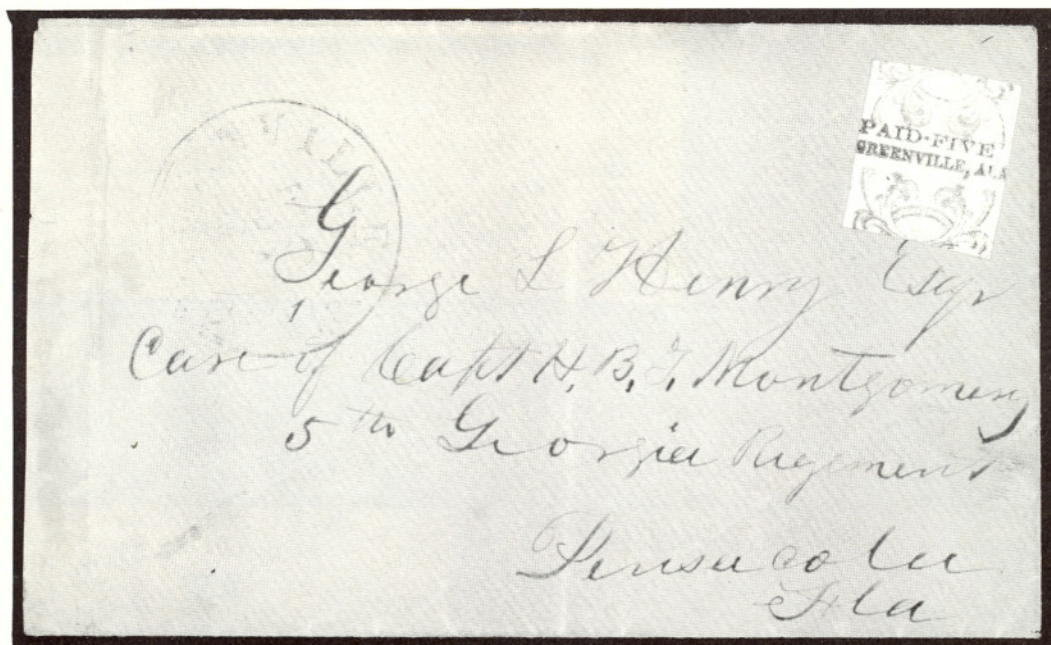 PAID-FIVE
GREENVILLE, ALA
George L Henry Esqr
Care of Capt H. B. T. Montgomery
5th Georgia Regement
Pensacola
Fla